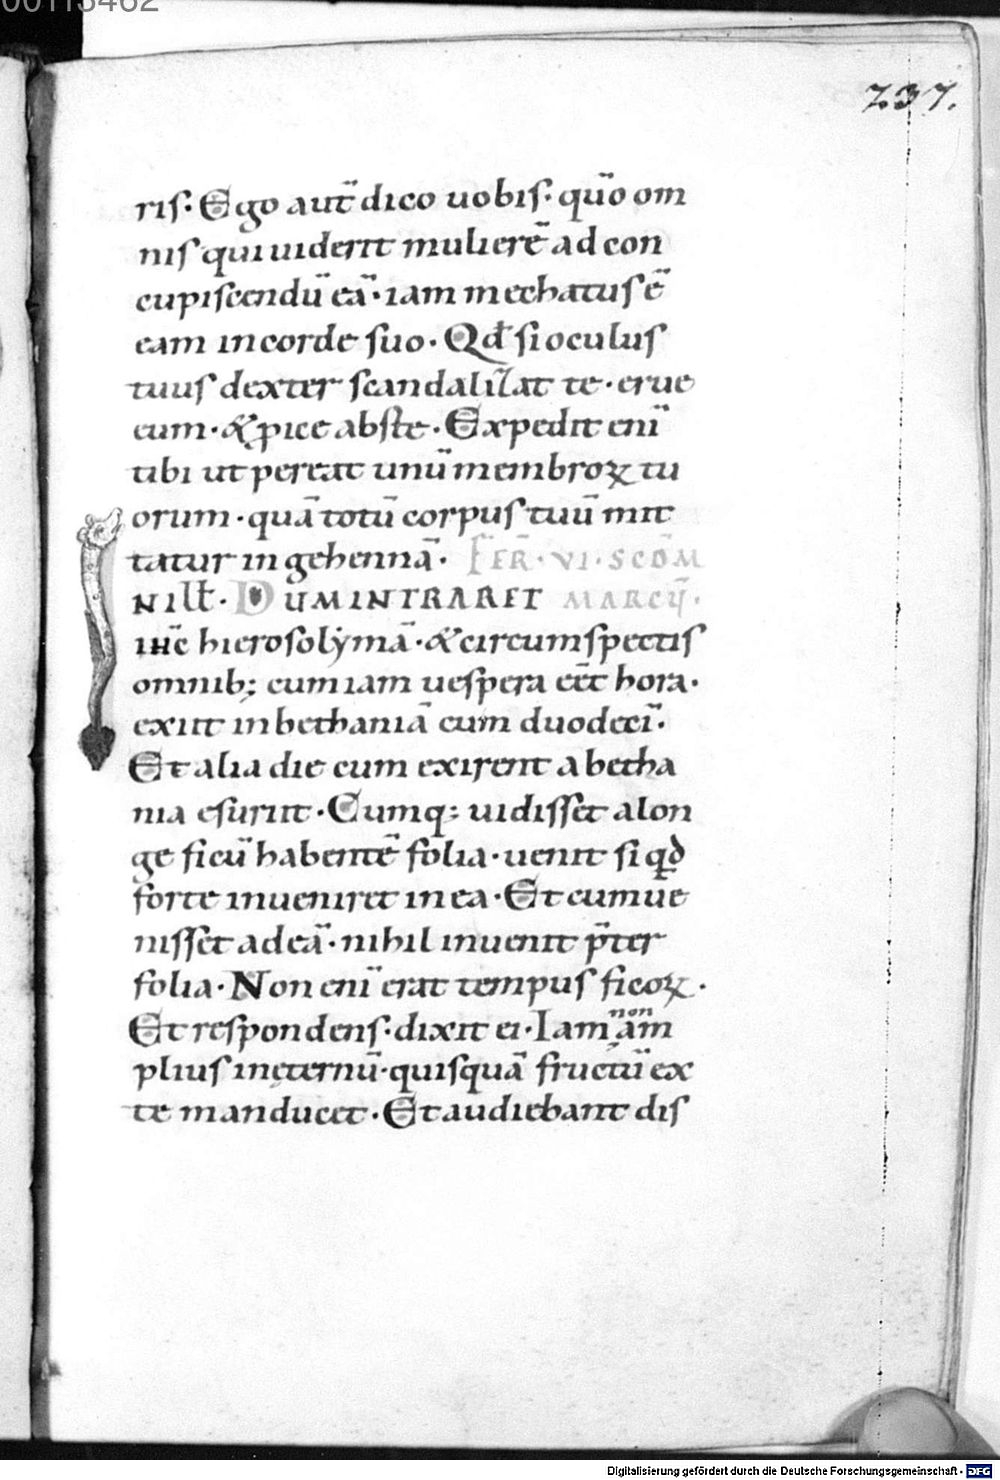 00113462
237.
ris· Ego aut̄ dico uobis· qūo om
nis qui uiderit mulierē ad con
cupiscendū eā· iam mechatus ē
eam in corde suo· Qd̄ si oculus
tuus dexter scandalizat te· erue
eum· & ꝓice abste· Expedit eni̅
tibi ut pereat unū membroꝝ tu
orum· quā totū corpus tuū mit
tatur in gehennā· FER̄· VI· SCD̄M
IN ILL̄T· DUM INTRARET MARCU̅·
ihc̄ hierosolẏmā· & circumspectis
omnib; cum iam uespera eēt hora·
exiit in bethaniā cum duodeci̅·
Et alia die cum exirent a betha
nia esuriit· Cumq; uidisset a lon
ge ficū habentē folia· uenit si qd̄
forte inueniret in ea· Et cum ue
nisset ad eā· nihil inuenit p̄ter
folia· Non eni̅ erat tempus ficoꝝ·
Et respondens· dixit ei· Iam non am
plius in ęternū· quisquā fructū ex
te manducet· Et audiebant dis
Digitalisierung gefördert durch die Deutsche Forschungsgemeinschaft - DFG